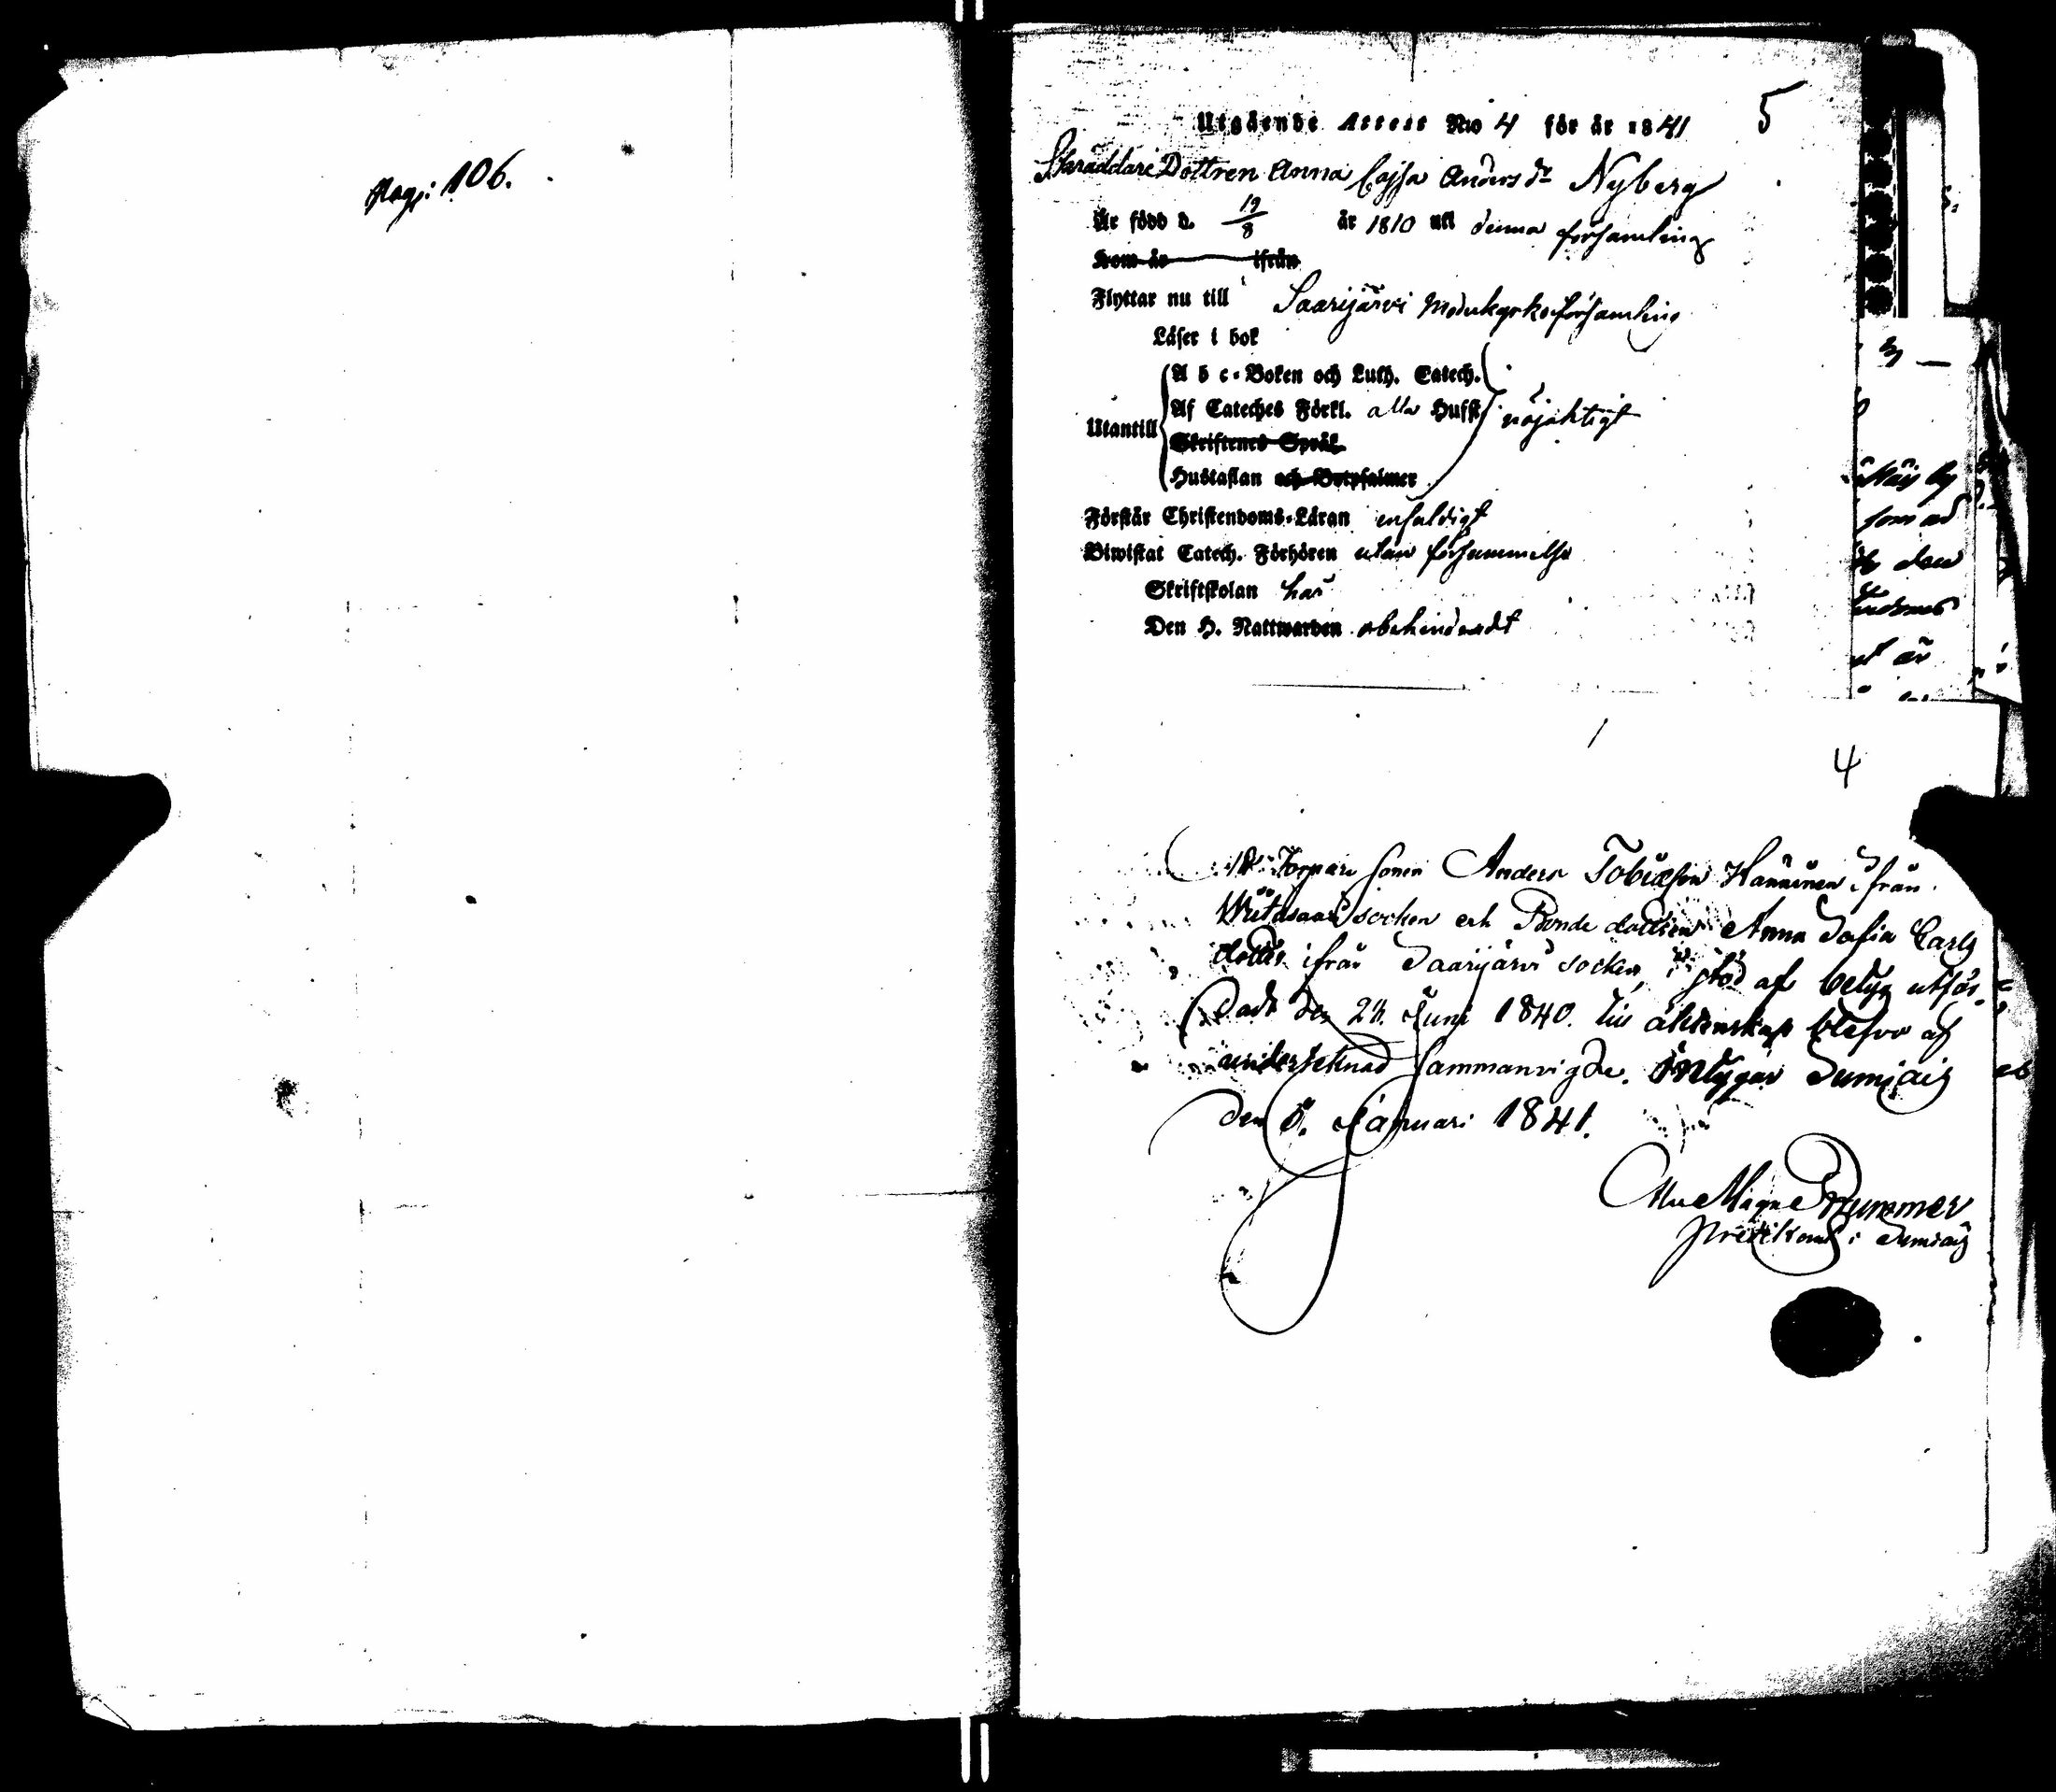 Pag: 106.
5
Utgående Attest N:o 4 för år 1841
Skräddare Dottren Anna Cajsa Anders dr Nyberg
Är född d. 19/8 år 1810 uti denna församling
kom år ifrån
Flyttar nu till Saarijärvi Moderkyrkoförsamling
Läser i bok
A b c-Boken och Luth. Catech.
Af Cateches Förkl. alla Hufst. nöjaktigt
Utantill
Skriftenes Språk
Hustaflan och Botpsalmer
Förstår Christendoms-Läran enfaldigt
Biwistat Catech. Förhören utan försummelse
Skriftskolan har
Den H. Nattwarden obehindradt
4
Torpare sonen Anders Tobiasson Hänninen ifrån
Wiitasaari socken och Bonde dottren Anna Sofia Carls
dotter ifrån Saarijärvi socken, i stöd af betyg utfär-
dadt den 24. Juni 1840. till äktenskap blefvo af
undertecknad sammanvigde. Intygar Sumiais
den 8. Januari 1841.
Brummer
predikant i Sumiais